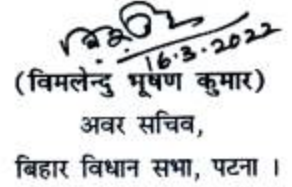 16.3.2022
(विमलेन्दु भूषण कुमार)
अवर सचिव,
बिहार विधान सभा, पटना ।